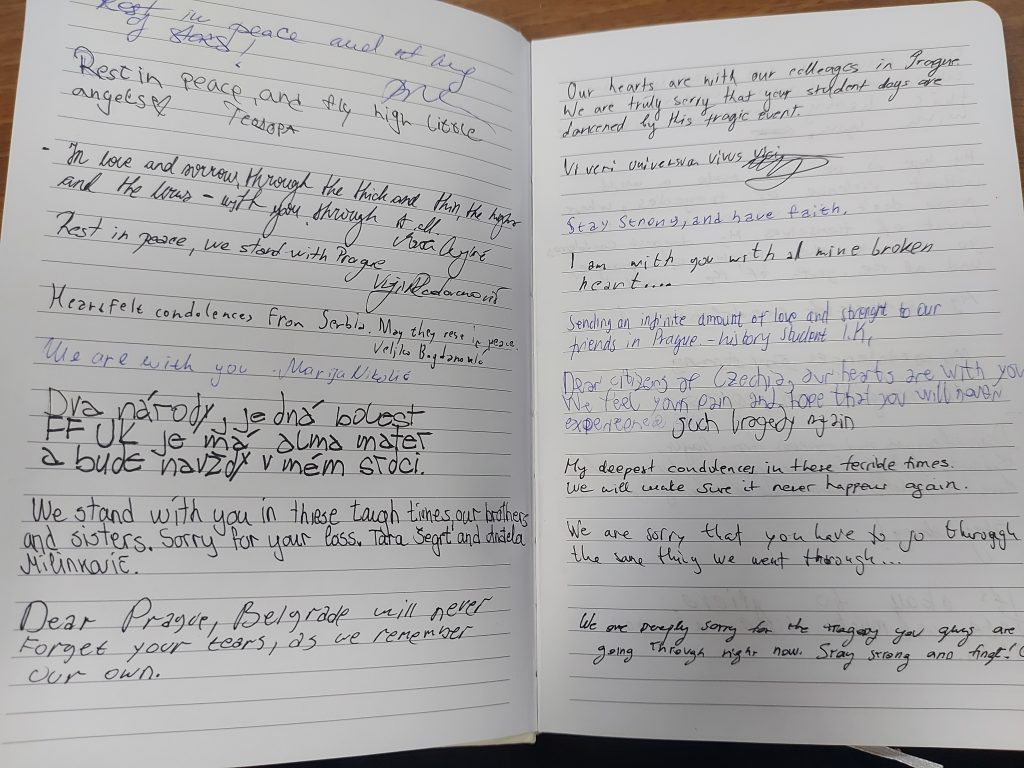 Rest in peace and
stars!
Rest in peace, and fly high little
angels
Теодора
- In love and sorrow, through the thick and thin, the highs
and the lows – with you through it all.
Rest in peace, we stand with Prague
Heartfelt condolences from Serbia. May they rest in peace.
Veljko Bogdanović
We are with you. Marija Nikolić
Dva národy, jedná bolest
FF UK je má alma mater
a bude navždy v mém srdci.
We stand with you in thiese tough times, our brothers
and sisters. Sorry for your loss. Tara Šegrt and Anđela
Milinković.
Dear Prague, Belgrade will never
Forget your tears, as we remember
our own.
Our hearts are with our colleages in Prague
We are truly sorry that your student days are
darkened by this tragic event.
Vi veri universum vivus
Stay strong, and have faith.
I am with you with al mine broken
heart....
Sending an infinite amount of love and strenght to our
friends in Prague. - history student I.K.
Dear citizens of Czechia, our hearts are with you
We feel your pain and hope that you will never
experience such tragedy again
My deepest condolences in these terrible times.
We will make sure it never happens again.
We are sorry that you have to go throggh
the same thing we went through...
We are deeply sorry for the tragedy you guys are
going through right now. Stay strong and fight!